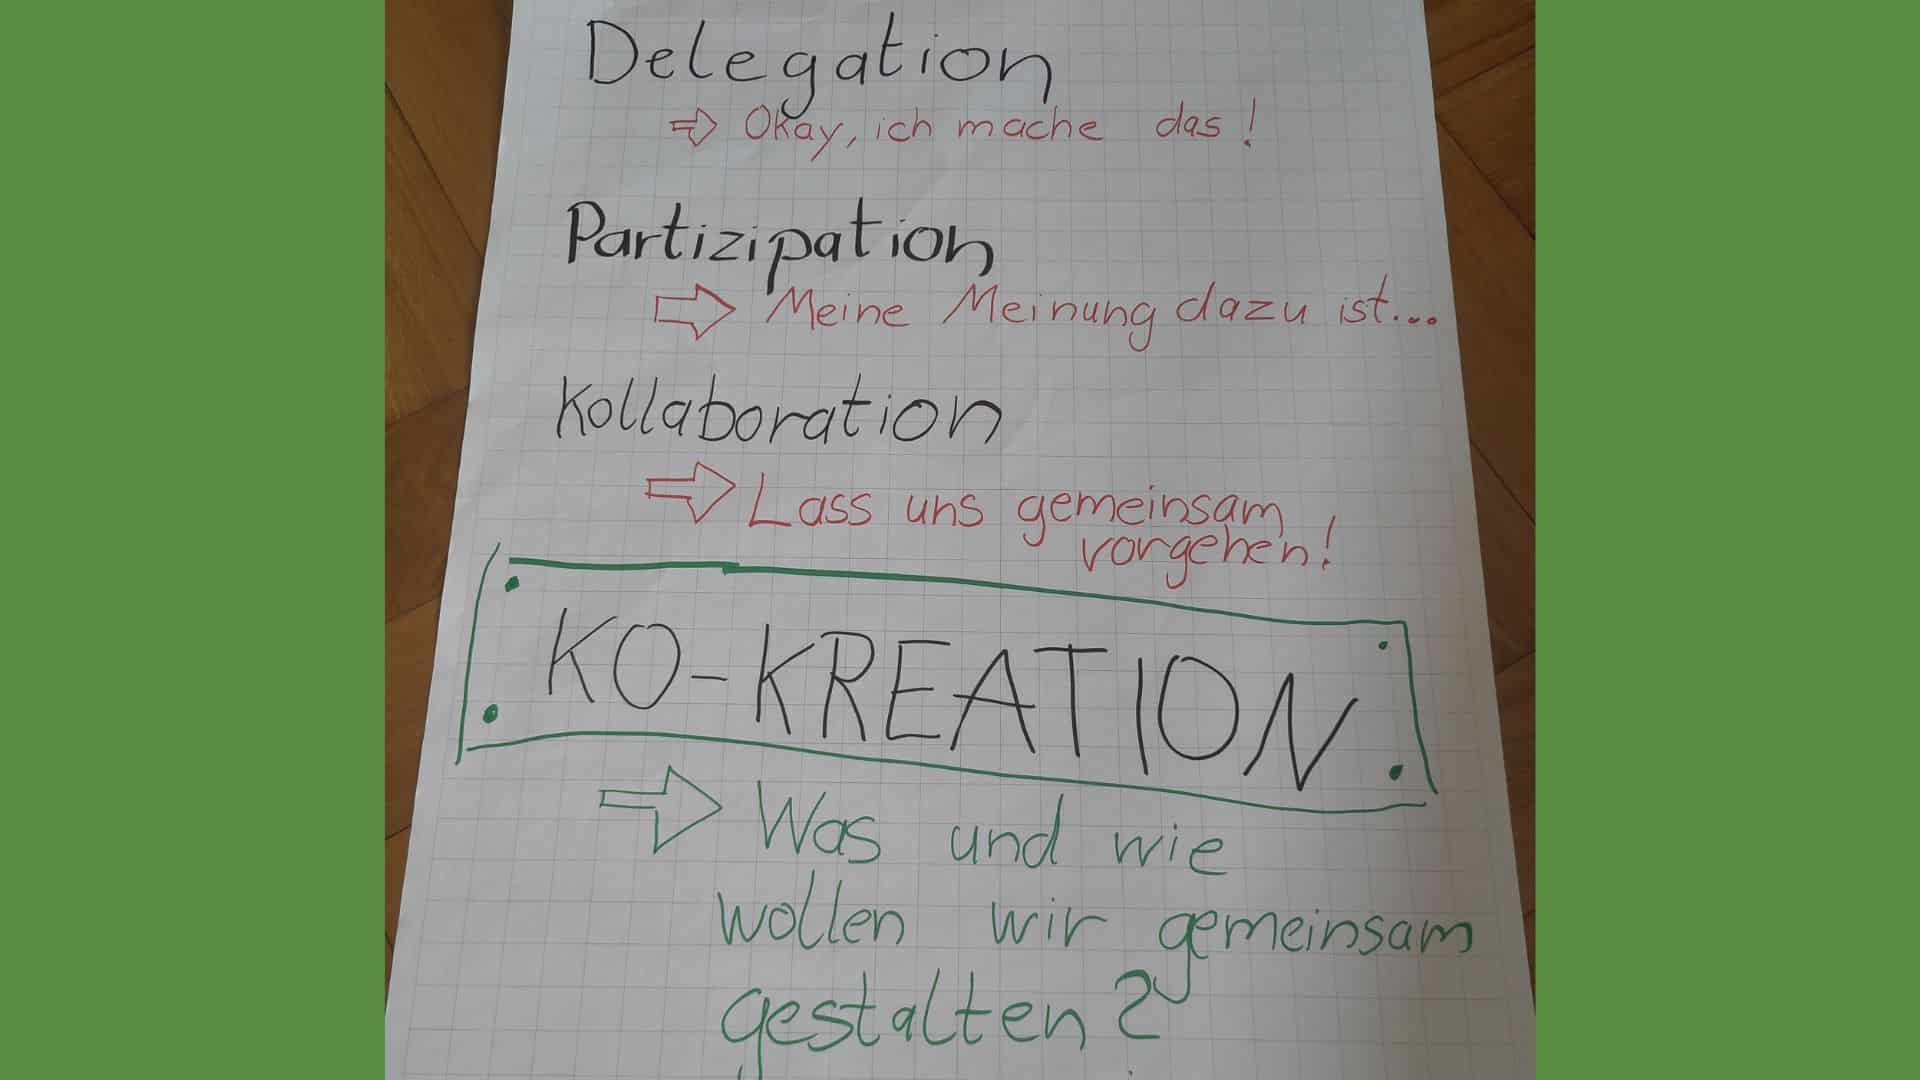 Delegation
Okay, ich mache das!
Partizipation
Meine Meinung dazu ist...
Kollaboration
Lass uns gemeinsam
vorgehen!
KO-KREATION
Was und wie
wollen wir gemeinsam
gestalten?